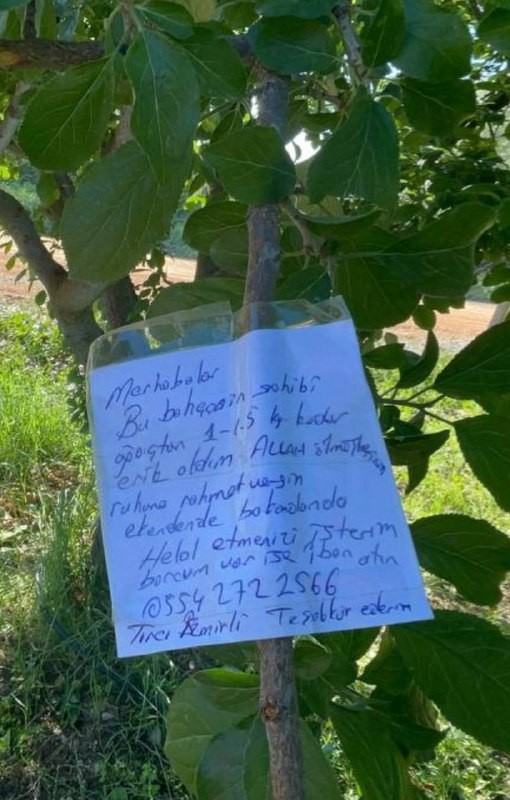 Merhabalar
Bu bahçenin sahibi
ağaçtan 1-1.5 kg kadar
erik aldım ALLAH ölmüşlerinin
ruhuna rahmet versin
ekendende bakandanda
Helal etmenizi isterim
borcum var ise iban atın
0554 272 2566
Tırcı Demirli Teşekkür ederim